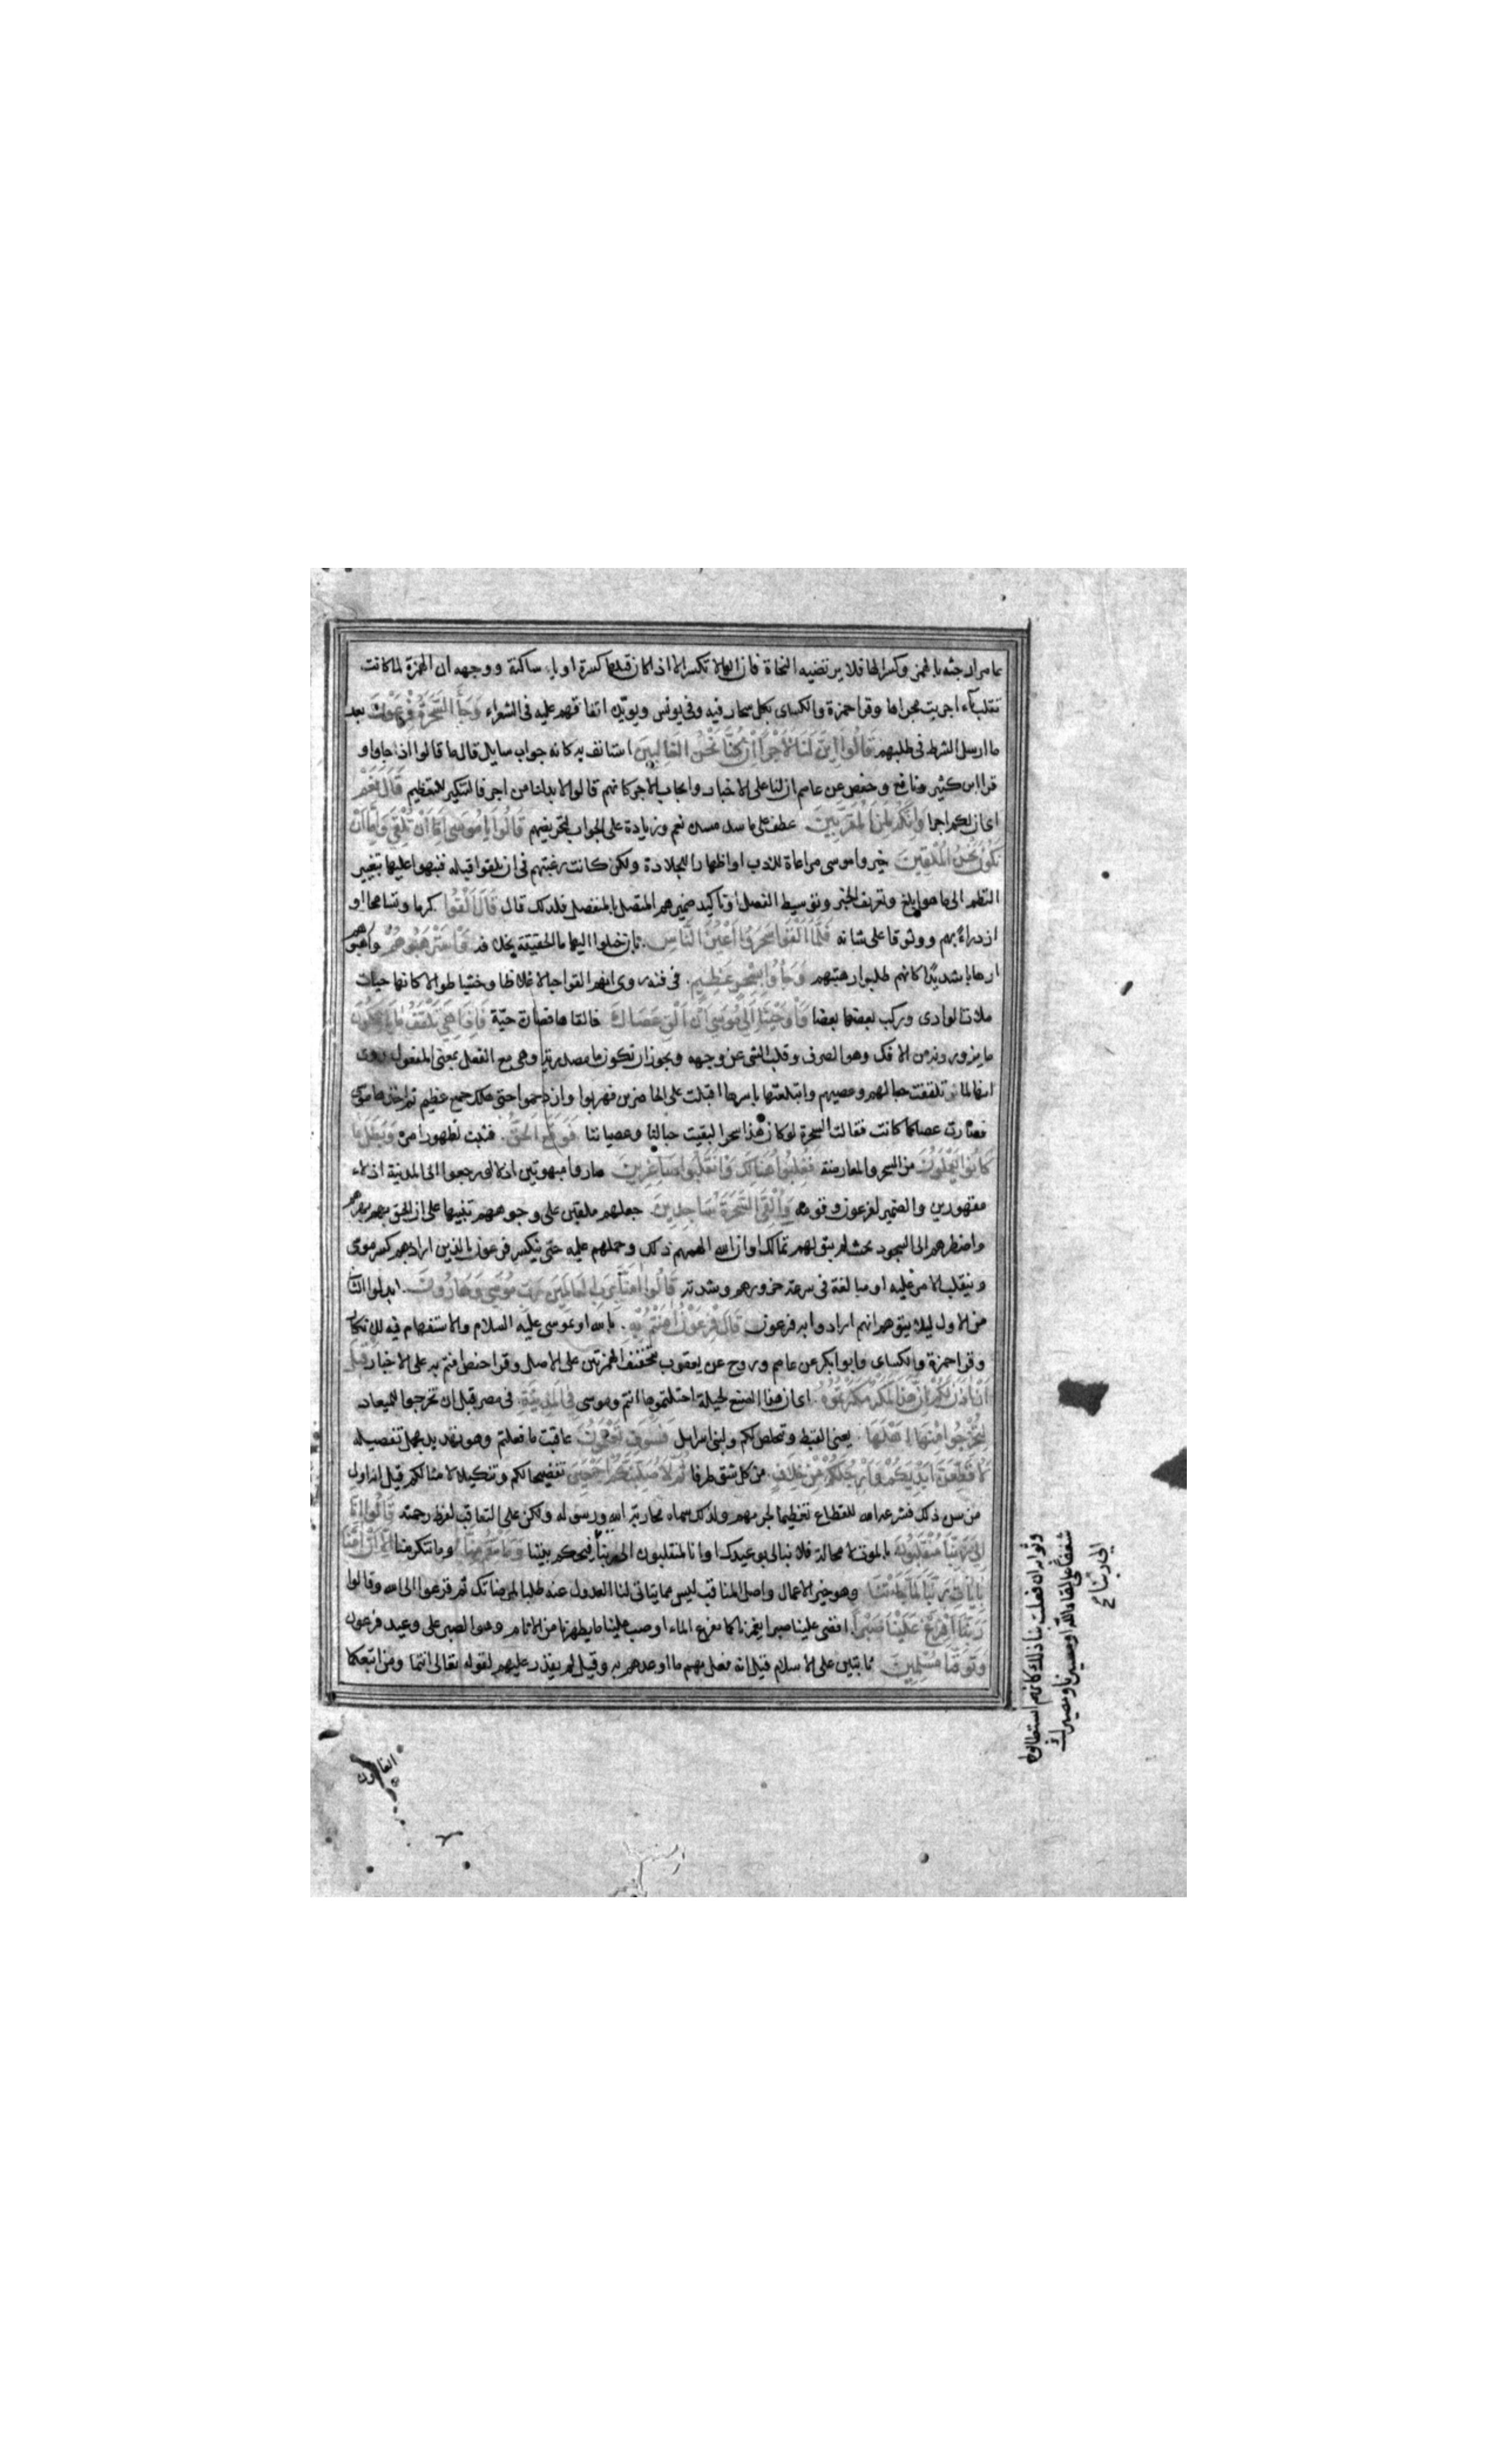 عامر ارجئه بالهمز وكسر الها فلا يرتضيه النحاة فان الها لا تكسر الا اذا كان قبلها كسرة او يا ساكنة ووجهه ان الهمزة لما كانت
تقلب ياء اجريت مجراها وقرا حمزة والكسائ بكل سحار فيه وفى يونس ويؤيده اتفاقهم عليه فى الشعراء وَجَاءَ السَّحَرَةُ فِرْعَوْنَ بعد
ما ارسل الشرط فى طلبهم قَالُوا اَئِنَّ لَنَا لَاَجْرًا اِنْ كُنَّا نَحْنُ الْغَالِبِينَ استانف به كانه جواب سايل قال ما قالوا اذ جاوا و
قرا ابن كثير ونافع وحفص عن عاصم ان لنا على الاخبار وايجاب الاجر كانهم قالوا لا بد لنا من اجر فالتنكير للتعظيم قَالَ نَعَمْ
اى ان لكم اجرا وَاِنَّكُمْ لَمِنَ الْمُقَرَّبِينَ عطف على ما سد مسده نعم وزيادة على الجواب لتحريضهم قَالُوا يَا مُوسَى اِمَّا اَنْ تُلْقِيَ وَاِمَّا اَنْ
نَكُونَ نَحْنُ الْمُلْقِينَ خيروا موسى مراعاة للادب او اظهارا للجلادة ولكن كانت رغبتهم فى ان يلقوا قبله فنبهوا عليها بتغيير
النظم الى ما هو ابلغ وتعريف الخبر وتوسيط الفصل او تاكيد ضميرهم المتصل بالمنفصل فلذلك قال قَالَ اَلْقُوا كرما وتسامحا او
ازدراءً بهم ووثوقا على شانه فَلَمَّا اَلْقَوْا سَحَرُوا اَعْيُنَ النَّاسِ بان خيلوا اليها ما الحقيقة بخلافه وَاسْتَرْهَبُوهُمْ وارهبوهم
ارهابا شديدًا كانهم طلبوا رهبتهم وَجَاؤُا بِسِحْرٍ عَظِيمٍ فى فنه روى انهم القوا حبالا غلاظا وخشبا طوالا كانها حيات
ملات الوادى وركب بعضها بعضا وَاَوْحَيْنَا اِلَى مُوسَى اَنْ اَلْقِ عَصَاكَ فالقاها فصارت حيّة فَاِذَا هِيَ تَلْقَفُ مَا يَاْفِكُونَ
ما يزورونه من الافك وهو الصرف وقلب الشى عن وجهه ويجوز ان تكون ما مصدرية وهى مع الفعل بمعنى المفعول روى
انها لما تلقفت حبالهم وعصيهم وابتلعتها باسرها اقبلت على الحاضرين فهربوا وازدحموا حتى هلك جمع عظيم ثم اخذها موسى
فصارت عصا كما كانت فقالت السحرة لو كان هذا سحرا لبقيت حبالنا وعصياننا فَوَقَعَ الْحَقُّ فثبت لظهور امره وَبَطَلَ مَا
كَانُوا يَعْمَلُونَ من السحر والمعارضة فَغُلِبُوا هُنَالِكَ وَانْقَلَبُوا صَاغِرِينَ صاروا مبهوتين اذلا او رجعوا الى المدينة اذلاء
مقهورين والضمير لفرعون وقومه وَاُلْقِيَ السَّحَرَةُ سَاجِدِينَ جعلهم ملقين على وجوههم تنبيها على ان الحق بهرهم
واضطرهم الى السجود بحيث لم يبق لهم تمالك او ان الله الهمهم ذلك وحملهم عليه حتى ينكسر فرعون بالذين اراد بهم كسر موسى
وينقلب الامر عليه او مبالغة فى سرعة خرورهم وشدته قَالُوا اٰمَنَّا بِرَبِّ الْعَالَمِينَ رَبِّ مُوسَى وَهَارُونَ ابدلوا الثانى
من الاول ليلا يتوهم انهم ارادوا به فرعون قَالَ فِرْعَوْنُ اٰمَنْتُمْ بِهِ بالله او بموسى عليه السلام والاستفهام فيه للانكار
وقرا حمزة والكسائ وابو بكر عن عاصم وروح عن يعقوب بتحقيق الهمزتين على الاصل وقرا حفص امنتم به على الاخبار قَبْلَ
اَنْ اٰذَنَ لَكُمْ اِنَّ هٰذَا لَمَكْرٌ مَكَرْتُمُوهُ اى ان هذا الصنع لحيلة احتلتموها انتم وموسى فِي الْمَدِينَةِ فى مصر قبل ان تخرجوا للميعاد
لِتُخْرِجُوا مِنْهَا اَهْلَهَا يعنى القبط وتخلص لكم ولبنى اسرايل فَسَوْفَ تَعْلَمُونَ عاقبة ما فعلتم وهو تهديد مجمل تفصيله
لَاُقَطِّعَنَّ اَيْدِيَكُمْ وَاَرْجُلَكُمْ مِنْ خِلَافٍ من كل شق طرفا ثُمَّ لَاُصَلِّبَنَّكُمْ اَجْمَعِينَ تفضيحا لكم وتنكيلا لامثالكم قيل انه اول
من سن ذلك فشرعه الله للقطاع تعظيما لجرمهم ولذلك سماه محاربة الله ورسوله ولكن على التعاقب لفرط رحمته قَالُوا اِنَّا
اِلَى رَبِّنَا مُنْقَلِبُونَ بالموت لا محالة فلا نبالى بوعيدك او انا لمنقلبون الى ربنا فيحكم بيننا وَمَا تَنْقِمُ مِنَّا وما تنكر منا اِلَّا اَنْ اٰمَنَّا
بِاٰيَاتِ رَبِّنَا لَمَّا جَاءَتْنَا وهو خير الاعمال واصل المناقب ليس مما يتاتى لنا العدول عنه طلبا لمرضاتك ثم فزعوا الى الله وقالوا
رَبَّنَا اَفْرِغْ عَلَيْنَا صَبْرًا افض علينا صبرا يغمرنا كما يفرغ الماء او صب علينا ما يطهرنا من الاثام وهو الصبر على وعيد فرعون
وَتَوَفَّنَا مُسْلِمِينَ ثابتين على الاسلام قيل انه فعل بهم ما اوعدهم به وقيل لم يقدر عليهم لقوله تعالى انتما ومن اتبعكما
الغالبون
وثوابه ان فعلت بنا ذلك كانهم استطابوه
شغفا على لقاء الله او مصيرنا ومصيرك